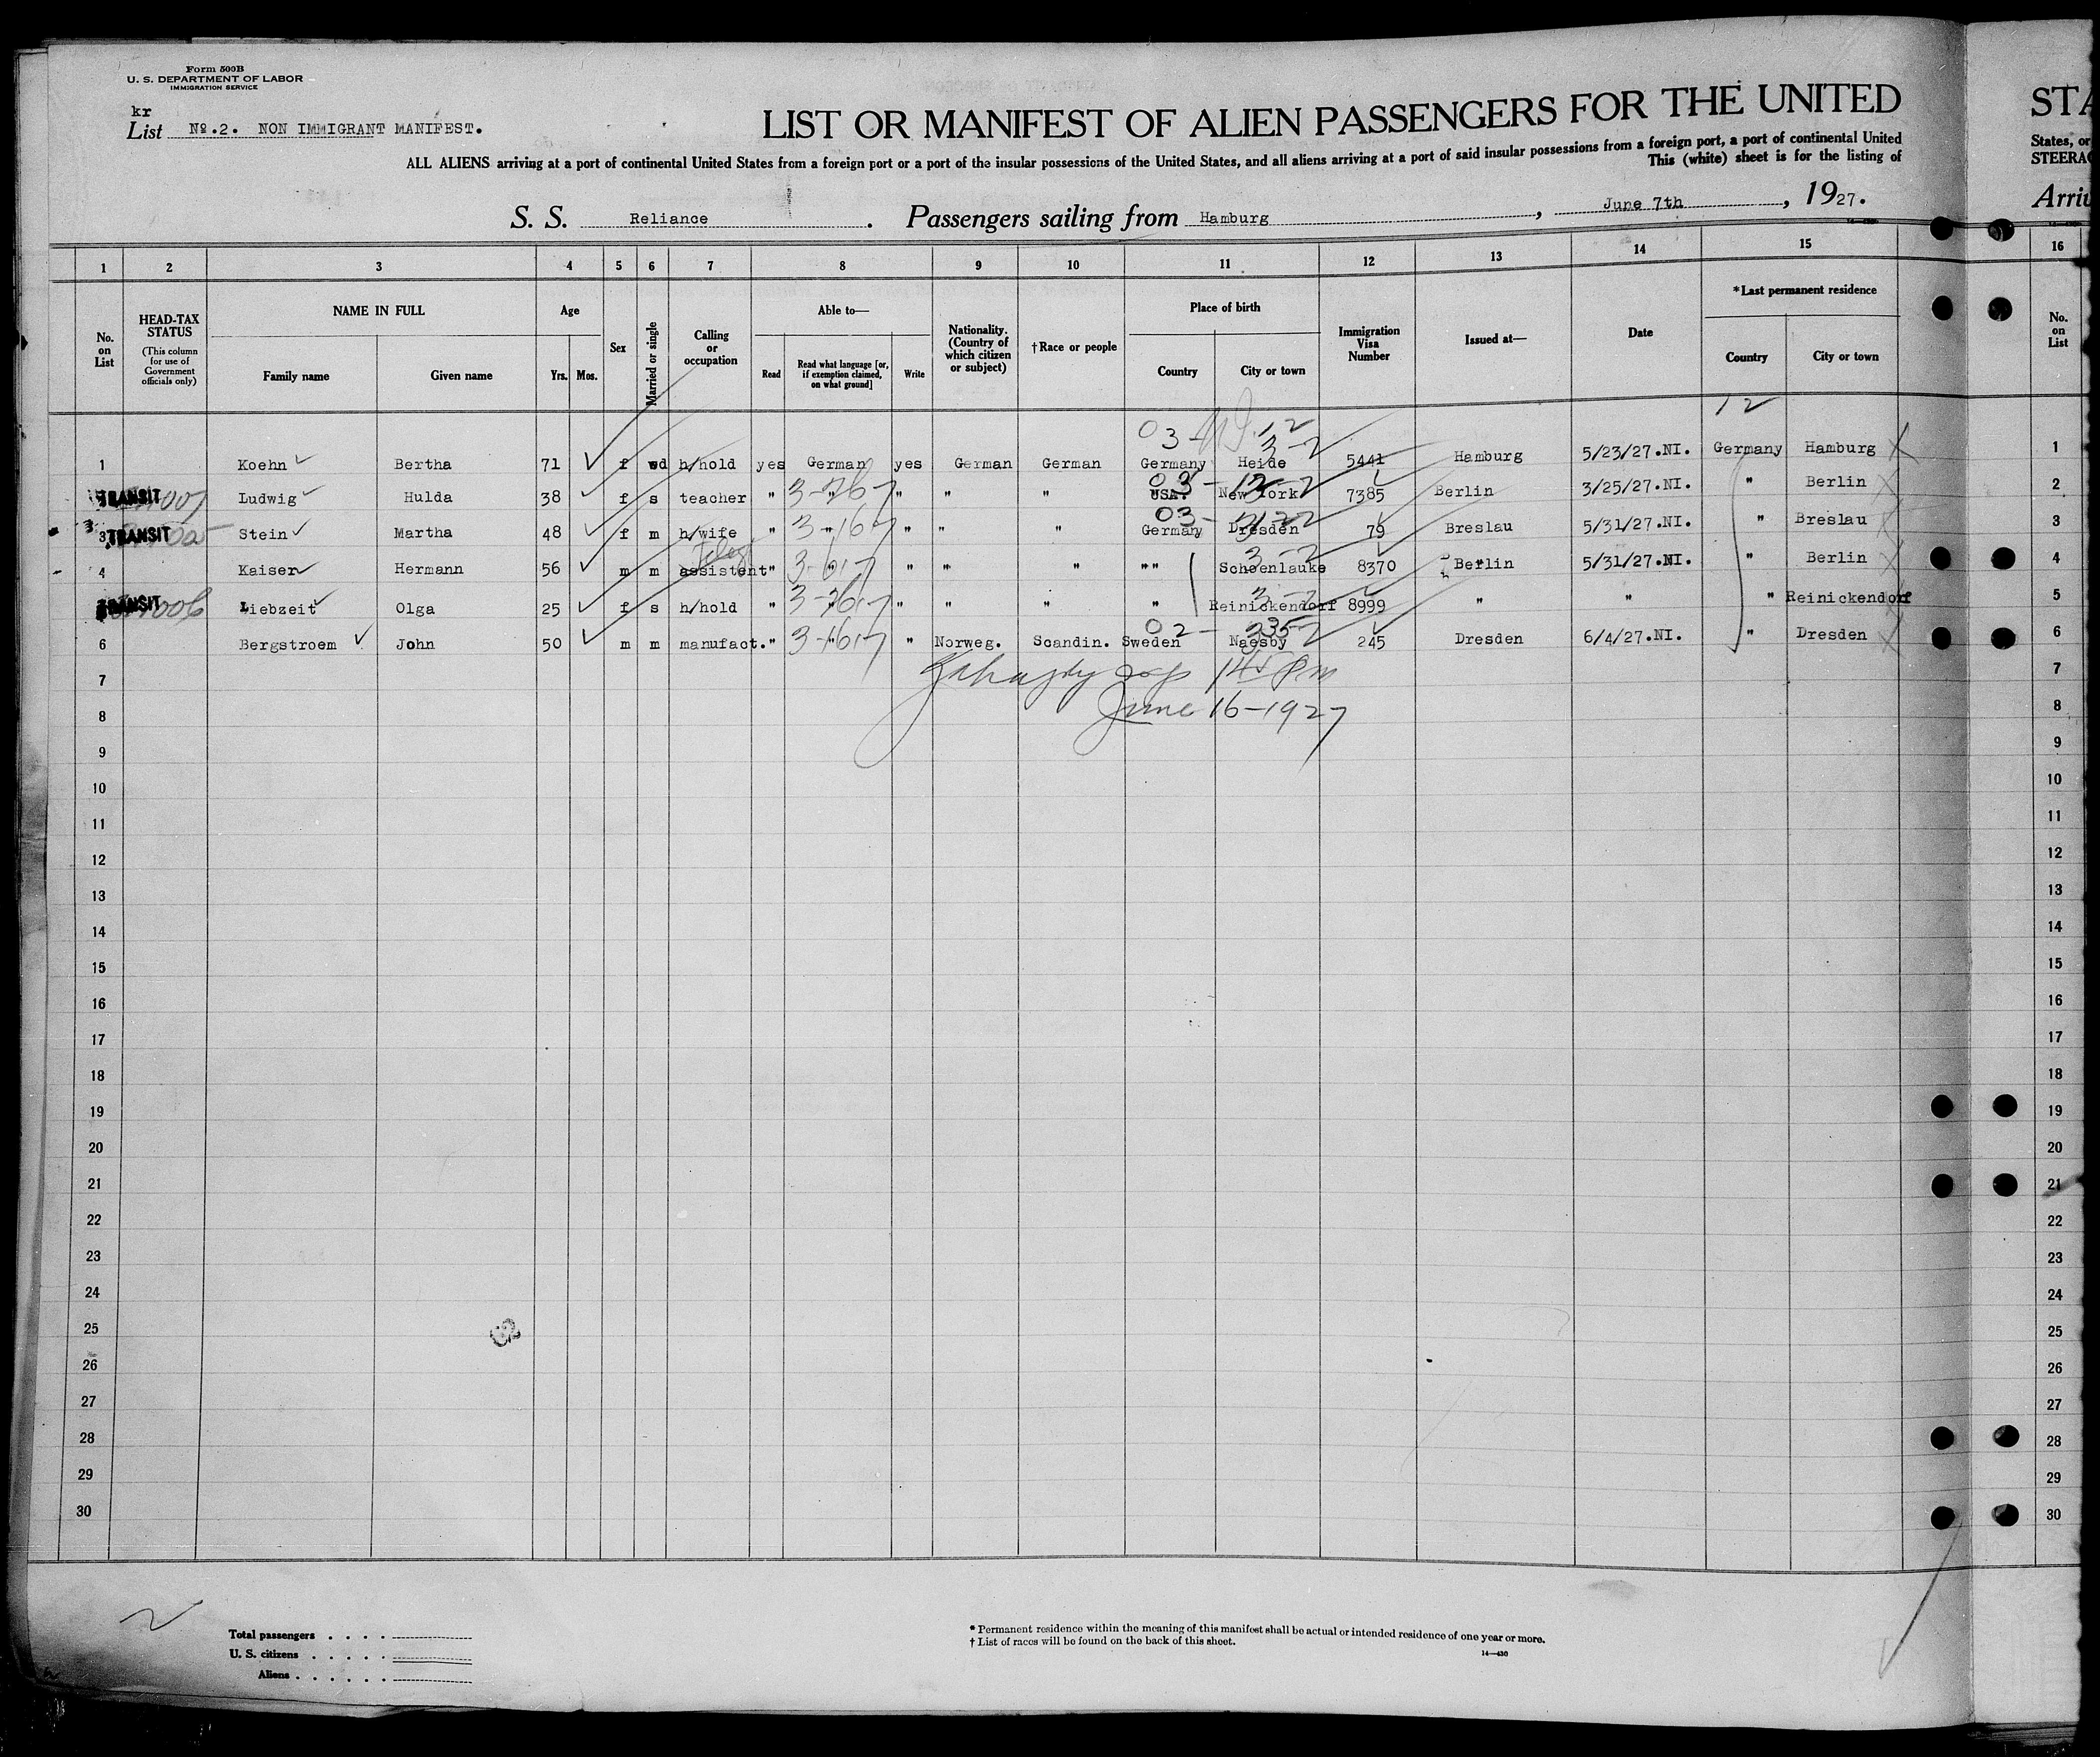 Form 500B
U. S. DEPARTMENT OF LABOR
IMMIGRATION SERVICE
kr
List No.2. NON IMMIGRANT MANIFEST.
LIST OR MANIFEST OF ALIEN PASSENGERS FOR THE UNITED
STA
ALL ALIENS arriving at a port of continental United States from a foreign port or a port of the insular possessions of the United States, and all aliens arriving at a port of said insular possessions from a foreign port, a port of continental United
States, or
This (white) sheet is for the listing of
STEERAG
S. S. Reliance. Passengers sailing from Hamburg, June 7th, 1927.
Arriv
1 2 3 4 5 6 7 8 9 10 11 12 13 14 15 16
No. on List
HEAD-TAX STATUS
(This column for use of Government officials only)
NAME IN FULL
Family name Given name
Age
Yrs. Mos.
Sex
Married or single
Calling or occupation
Able to—
Read
Read what language [or, if exemption claimed, on what ground]
Write
Nationality. (Country of which citizen or subject)
†Race or people
Place of birth
Country City or town
Immigration Visa Number
Issued at—
Date
*Last permanent residence
Country City or town
No. on List
12
03- 3-2
1 Koehn Bertha 71 f wd h/hold yes German yes German German Germany Heide 5441 Hamburg 5/23/27.NI. Germany Hamburg 1
TRANSIT Ludwig Hulda 38 f s teacher " " " " " USA. New York 7385 Berlin 3/25/27.NI. " Berlin 2
03-
3 TRANSIT Stein Martha 48 f m h/wife " " " " " Germany Dresden 79 Breslau 5/31/27.NI. " Breslau 3
4 Kaiser Hermann 56 m m assistent " " " " " "" Schoenlauke 8370 Berlin 5/31/27.NI. " Berlin 4
TRANSIT Liebzeit Olga 25 f s h/hold " " " " " " Reinickendorf 8999 " " " Reinickendorf 5
02-
6 Bergstroem John 50 m m manufact. " " " Norweg. Scandin. Sweden Naesby 245 Dresden 6/4/27.NI. " Dresden 6
7 7
June 16-1927
8 8
9 9
10 10
11 11
12 12
13 13
14 14
15 15
16 16
17 17
18 18
19 19
20 20
21 21
22 22
23 23
24 24
25 25
26 26
27 27
28 28
29 29
30 30
Total passengers
U. S. citizens
Aliens
* Permanent residence within the meaning of this manifest shall be actual or intended residence of one year or more.
† List of races will be found on the back of this sheet.
14—430